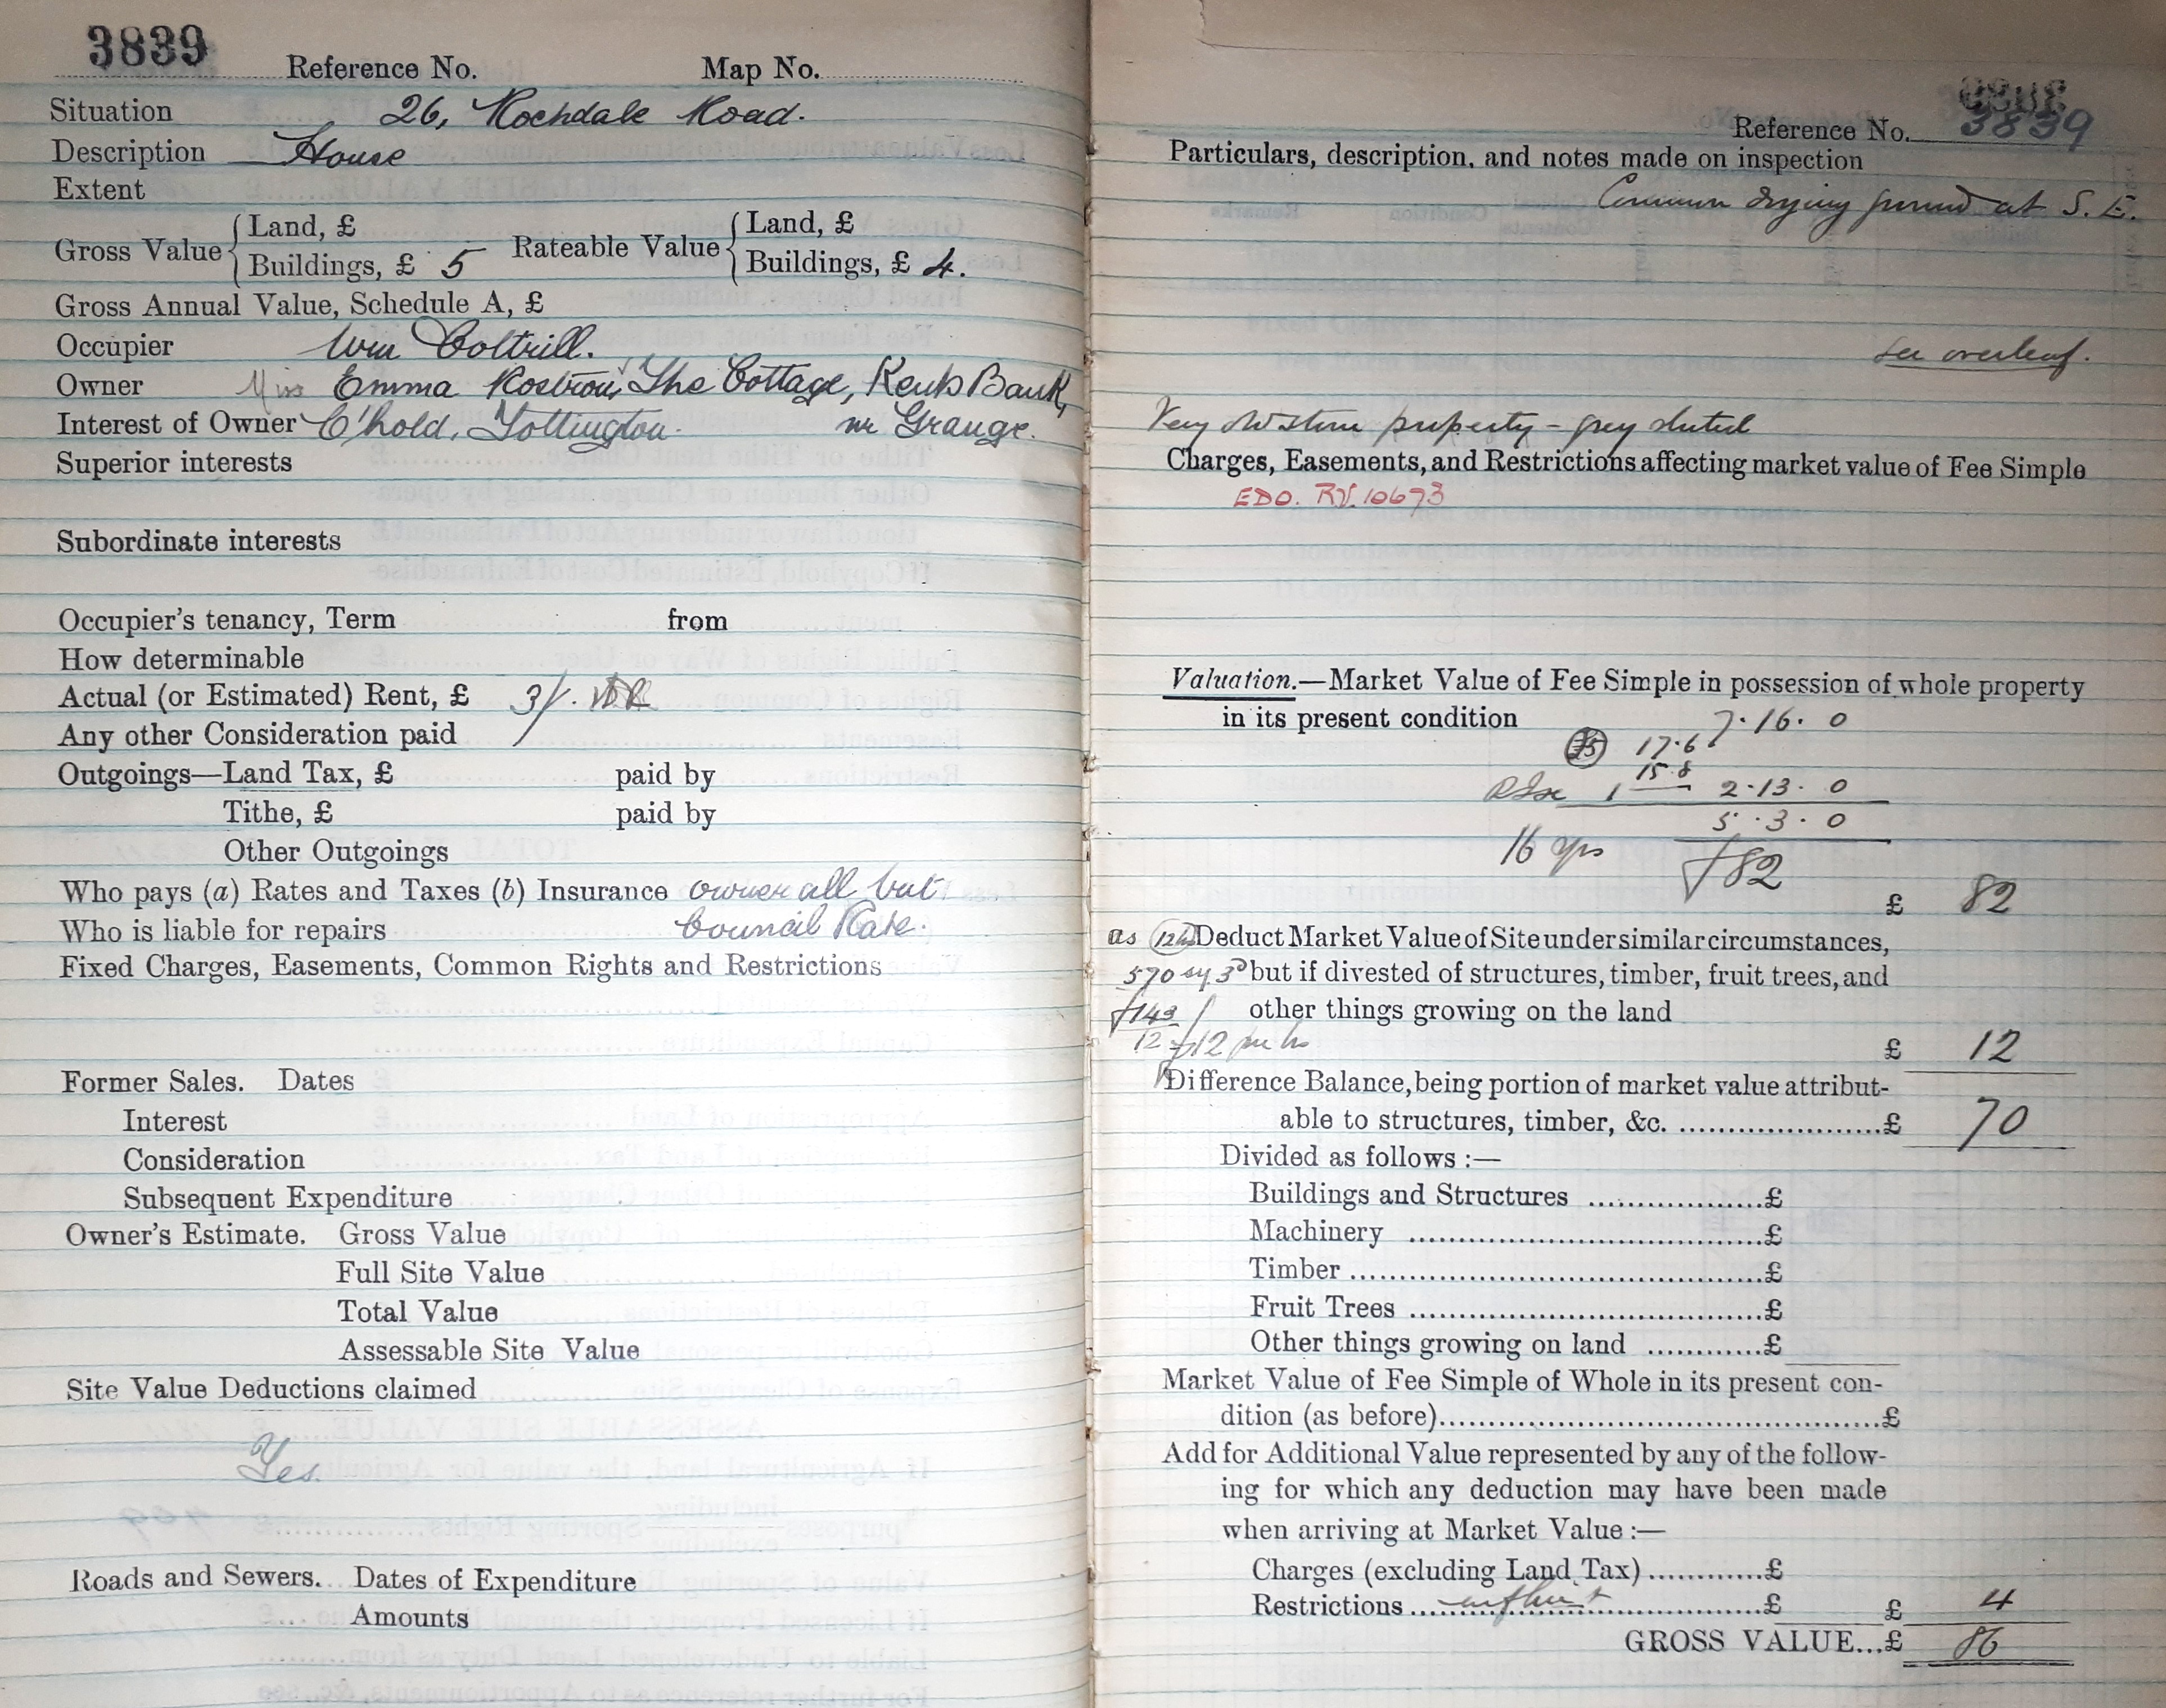 3839 Reference No. Map No.
Situation 26, Rochdale Road.
Description House
Extent
Gross Value { Land, £ Rateable Value { Land, £
Buildings, £ 5 Buildings, £ 4.
Gross Annual Value, Schedule A, £
Occupier Wm Cottrill.
Owner Miss Emma Rostron, The Cottage, Kents Bank,
Interest of Owner C'hold, Tottington. nr Grange.
Superior interests
Subordinate interests
Occupier's tenancy, Term from
How determinable
Actual (or Estimated) Rent, £ 3/.
Any other Consideration paid
Outgoings—Land Tax, £ paid by
Tithe, £ paid by
Other Outgoings
Who pays (a) Rates and Taxes (b) Insurance owner all but
Who is liable for repairs Council Rate.
Fixed Charges, Easements, Common Rights and Restrictions
Former Sales. Dates
Interest
Consideration
Subsequent Expenditure
Owner's Estimate. Gross Value
Full Site Value
Total Value
Assessable Site Value
Site Value Deductions claimed
Yes.
Roads and Sewers. Dates of Expenditure
Amounts
Reference No. 3839
Particulars, description, and notes made on inspection
Common drying ground at S. E.
See overleaf.
Very old stone property - grey slated
Charges, Easements, and Restrictions affecting market value of Fee Simple
EDO. RV. 10673
Valuation.—Market Value of Fee Simple in possession of whole property
in its present condition 7. 16. 0
£5 17.6
15.8
1 2. 13. 0
5. 3. 0
16 yrs £82
£ 82
as Deduct Market Value of Site under similar circumstances,
570 sy 3D but if divested of structures, timber, fruit trees, and
£143 other things growing on the land
12 £12 per hs
£ 12
Difference Balance, being portion of market value attribut-
able to structures, timber, &c. £ 70
Divided as follows :—
Buildings and Structures £
Machinery £
Timber £
Fruit Trees £
Other things growing on land £
Market Value of Fee Simple of Whole in its present con-
dition (as before) £
Add for Additional Value represented by any of the follow-
ing for which any deduction may have been made
when arriving at Market Value :—
Charges (excluding Land Tax) £
Restrictions £ £ 4
GROSS VALUE...£ 86